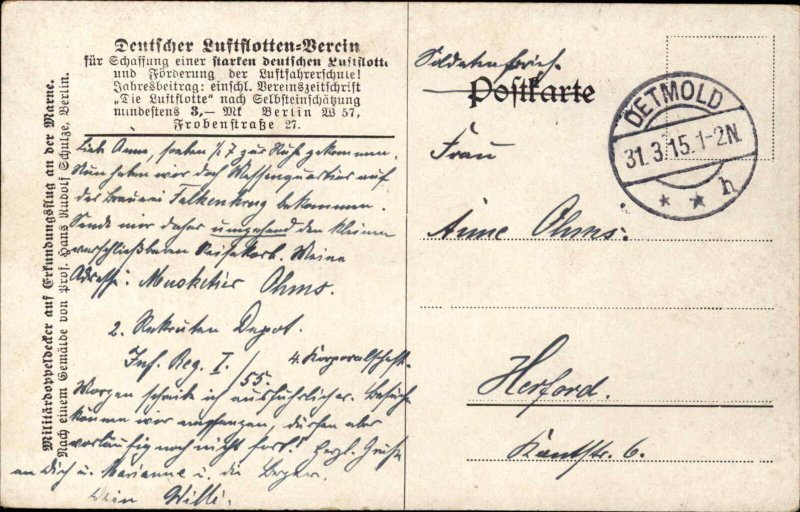 Deutscher Luftflotten-Verein
für Schaffung einer starken deutschen Luftflotte
und Förderung der Luftfahrerschule!
Jahresbeitrag: einschl. Vereinszeitschrift
"Die Luftflotte" nach Selbsteinschätzung
mindestens 3,— Mk Berlin W 57,
Frobenstraße 27.
Liebe Anna, soeben 1/2 7 zur Ruhe gekommen.
Nun haben wir doch Massenquartier auf
der Brauerei Falkenkrug bekommen.
Sende mir daher umgehend den kleinen
verschließbaren Reisekorb. Meine
Adresse: Musketier Ohms.
2. Rekruten Depot.
Inf. Reg. I/55. 4. Korporalschaft.
Morgen schreibe ich ausführlicher. Besuche
können wir empfangen, dürfen aber
vorläufig noch nicht fort! Herzl. Grüße
an Dich u. Marianne u. die
Dein Willi.
Militärdoppeldecker auf Erkundungsflug an der Marne.
Nach einem Gemälde von Prof. Hans Rudolf Schulze, Berlin.
Soldatenbrief.
Postkarte
DETMOLD
31.3.15.1-2N.
* * h
Frau
Anne Ohms.
Herford.
Kantstr. 6.